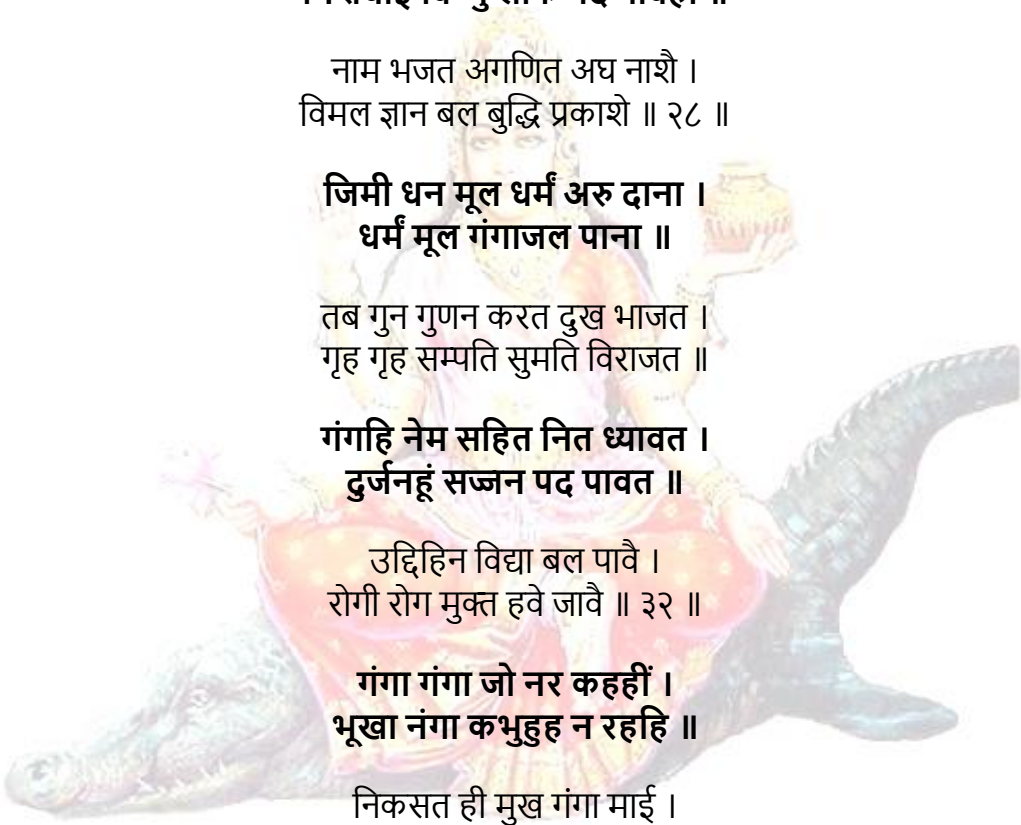 नाम भजत अगणित अघ नाशै ।
विमल ज्ञान बल बुद्धि प्रकाशे ॥ २८ ॥
जिमी धन मूल धर्मं अरु दाना ।
धर्मं मूल गंगाजल पाना ॥
तब गुन गुणन करत दुख भाजत ।
गृह गृह सम्पति सुमति विराजत ॥
गंगहि नेम सहित नित ध्यावत ।
दुर्जनहूं सज्जन पद पावत ॥
उद्दिहिन विद्या बल पावै ।
रोगी रोग मुक्त हवे जावै ॥ ३२ ॥
गंगा गंगा जो नर कहहीं ।
भूखा नंगा कभुहुह न रहहि ॥
निकसत ही मुख गंगा माई ।